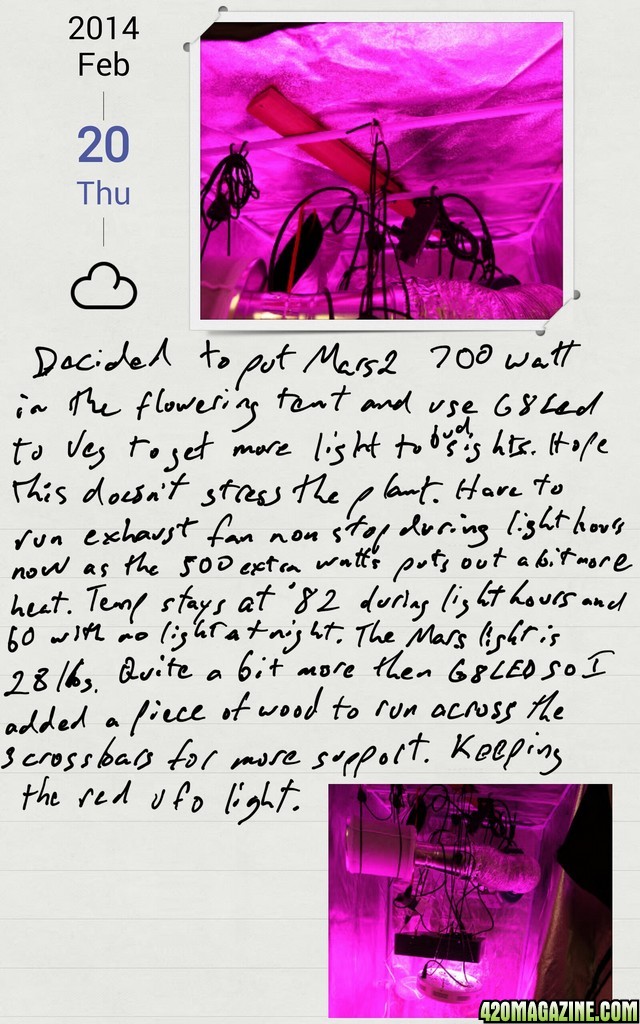 2014
Feb
20
Thu
Decided to put Mars2 700 watt
in the flowering tent and use G8Led
to Veg to get more light to bud sights. Hope
this doesn't stress the plant. Have to
run exhaust fan non stop during light hours
now as the 500 extra watts puts out a bit more
heat. Temp stays at °82 during light hours and
60 with no light at night. The Mars light is
28 lbs. Quite a bit more then G8LED so I
added a piece of wood to run across the
3 crossbars for more support. Keeping
the red ufo light.
420MAGAZINE.COM